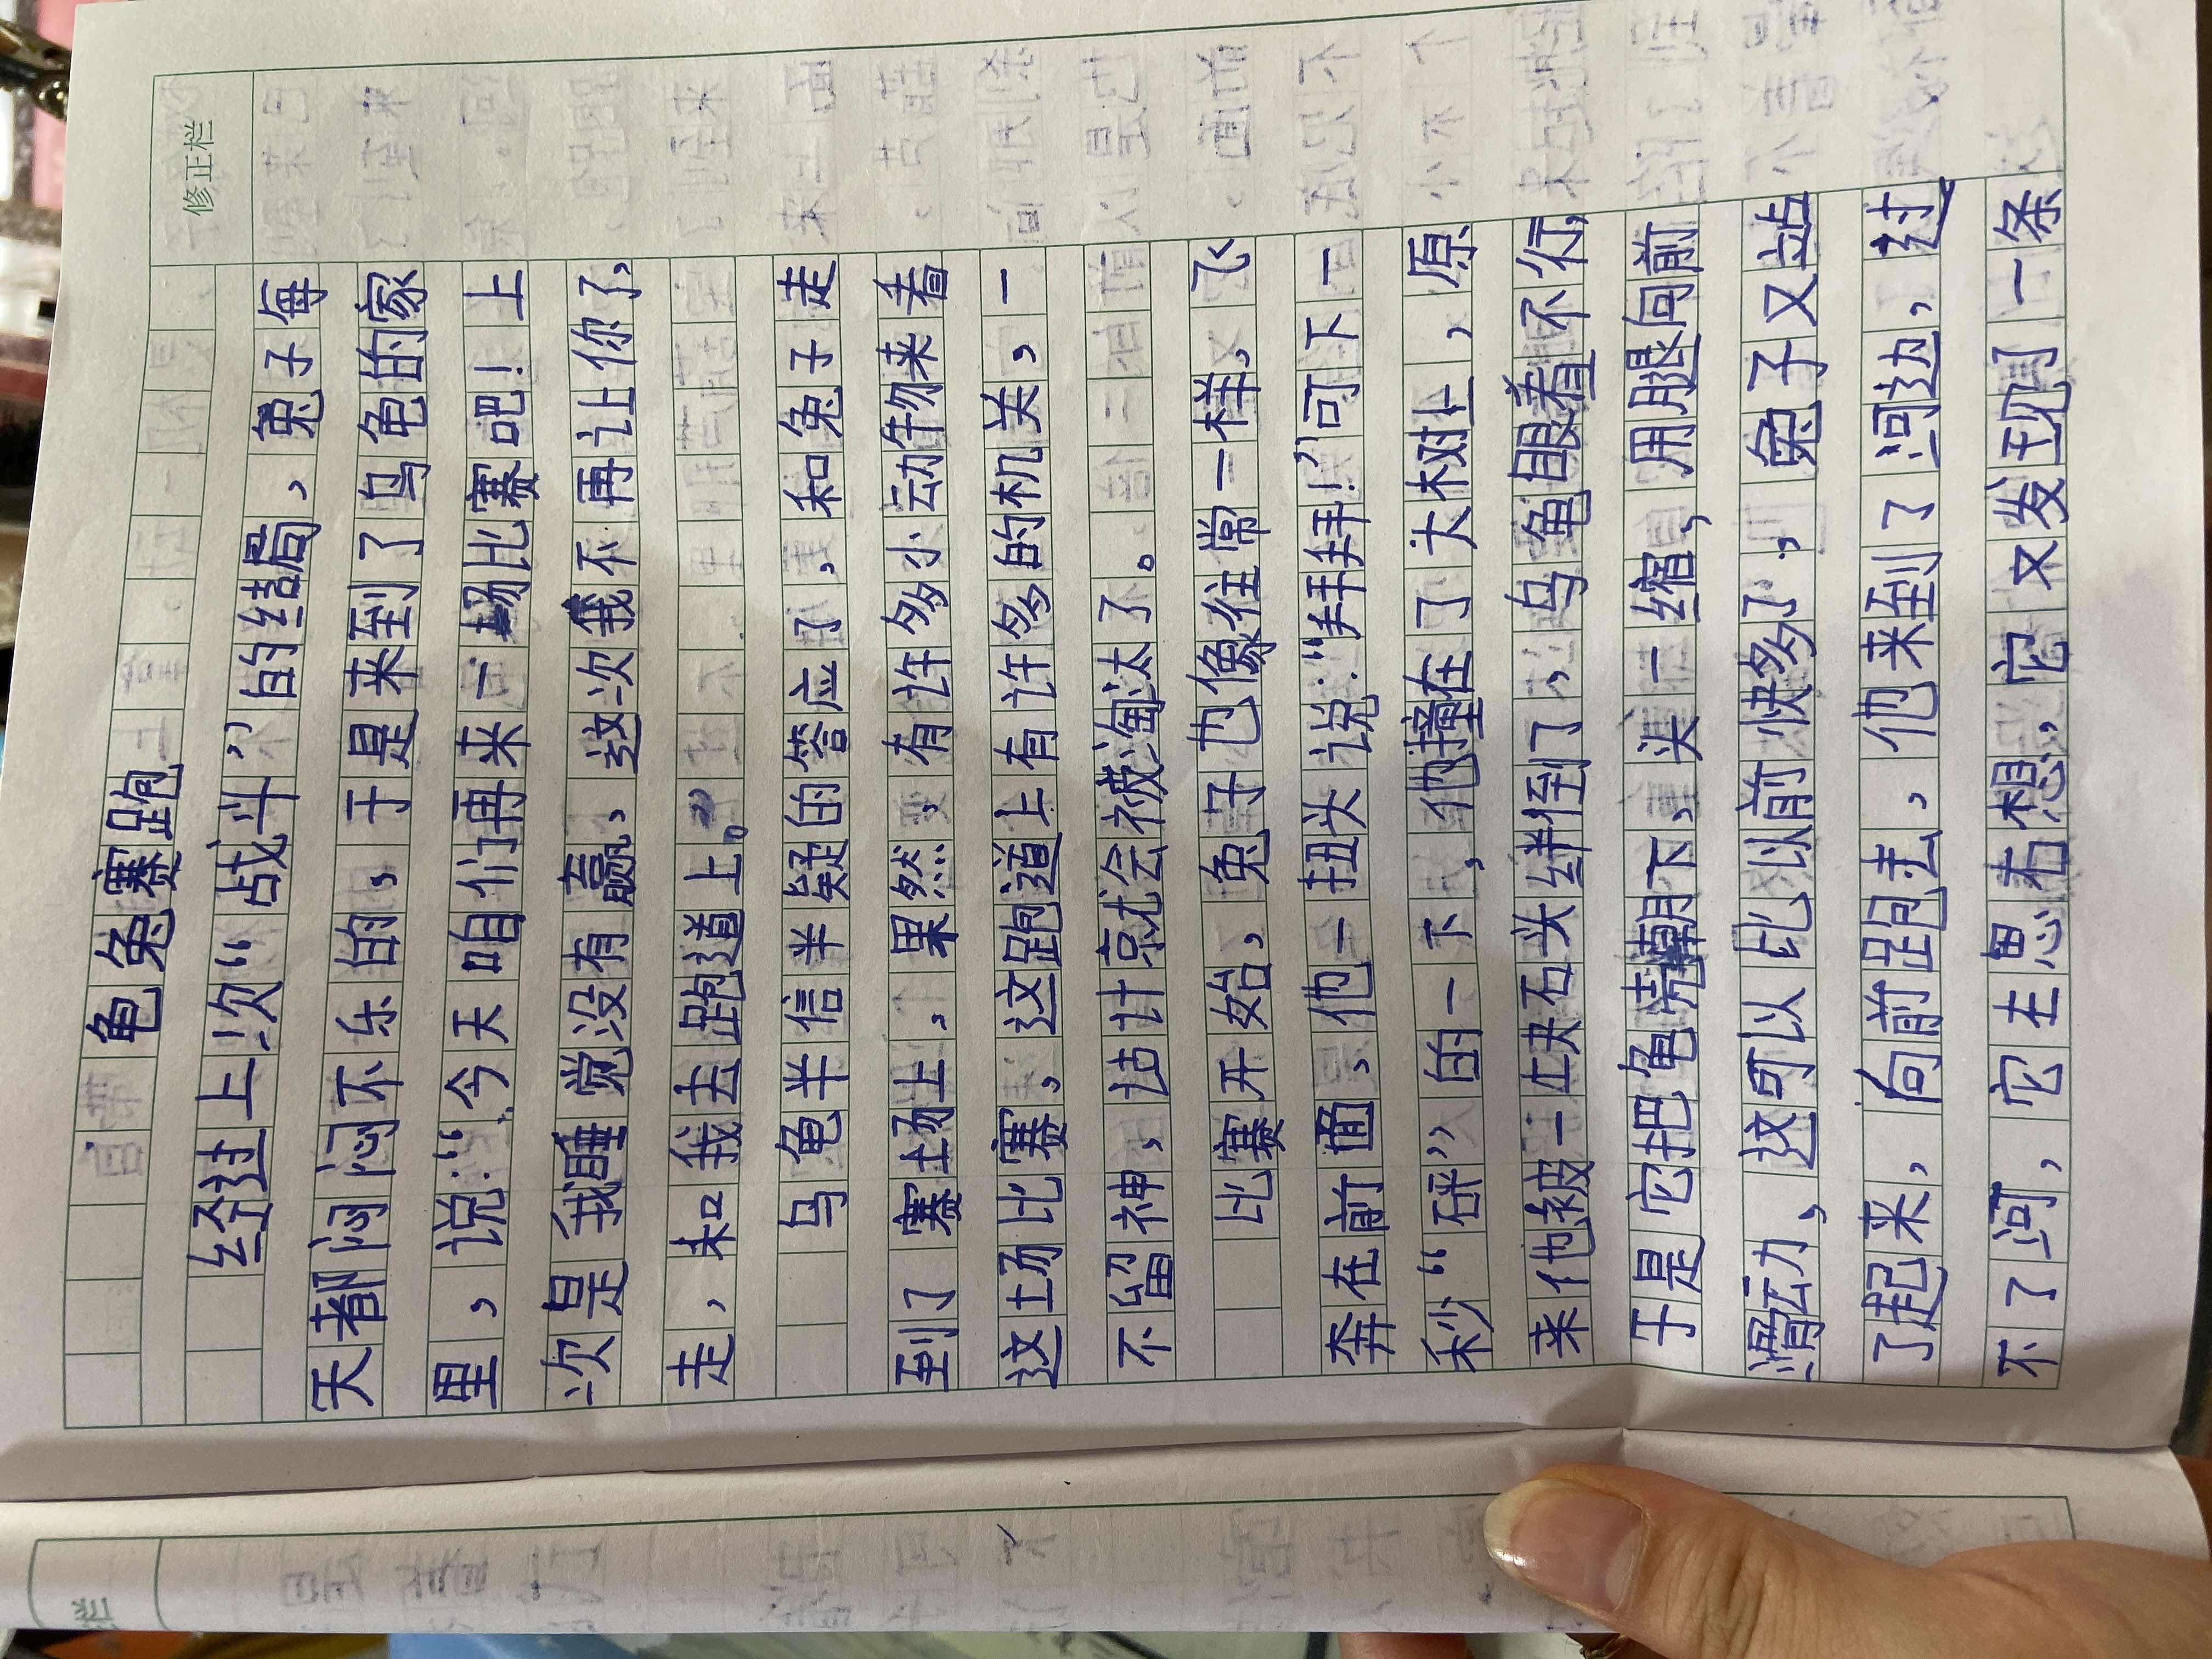 修正栏
龟兔赛跑
经过上次“战斗”的结局，兔子每
天都闷闷不乐的，于是来到了乌龟的家
里，说：“今天咱们再来一场比赛吧！上
次是我睡觉没有赢，这次我不再让你了，
走，和我去跑道上。”
乌龟半信半疑的答应了，和兔子走
到了赛场上，果然，有许多小动物来看
这场比赛，这跑道上有许多的机关，一
不留神，估计就会被淘汰了。
比赛开始，兔子也像往常一样，飞
奔在前面，他一扭头说：“拜拜！”可下一
秒“砰”的一下，他撞在了大树上，原
来他被一块石头绊倒了，乌龟眼看不行，
于是它把龟壳朝下，头一缩，用腿向前
滑动，这可以比以前快多了，兔子又站
了起来，向前跑去，他来到了河边，过
不了河，它左思右想，它又发现了一条